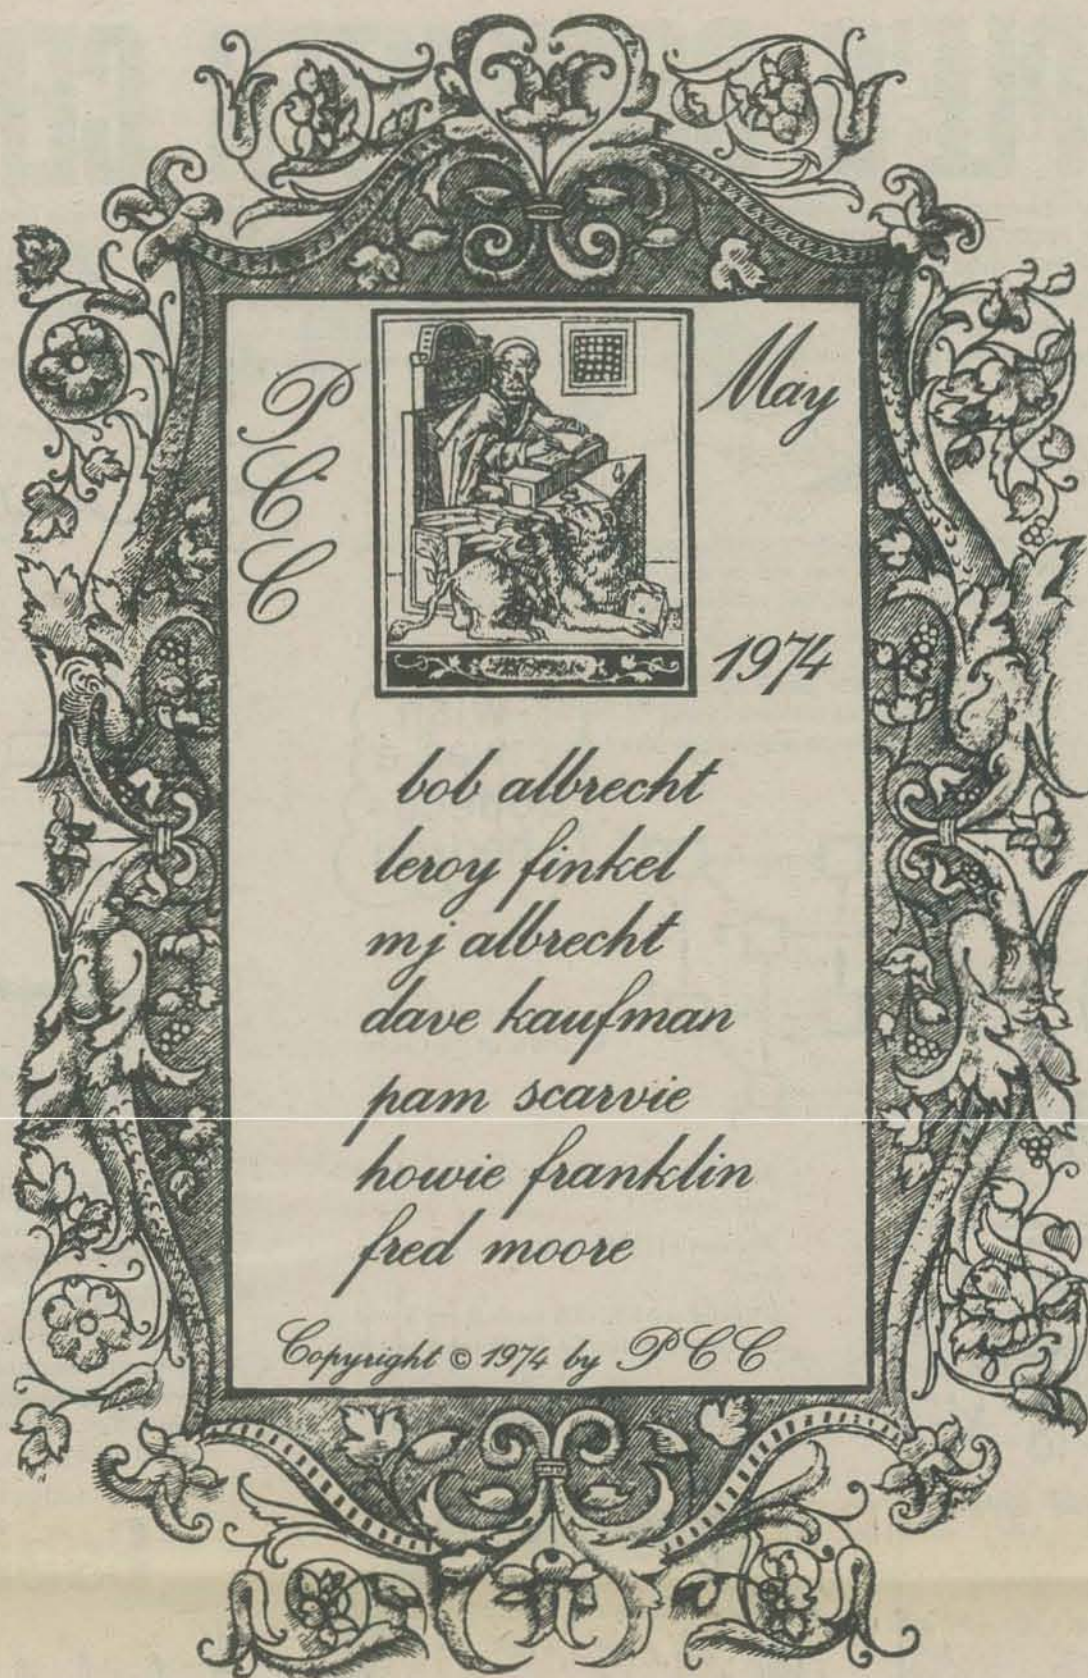 PCC
May
1974
bob albrecht
leroy finkel
mj albrecht
dave kaufman
pam scarvie
howie franklin
fred moore
Copyright © 1974 by PCC